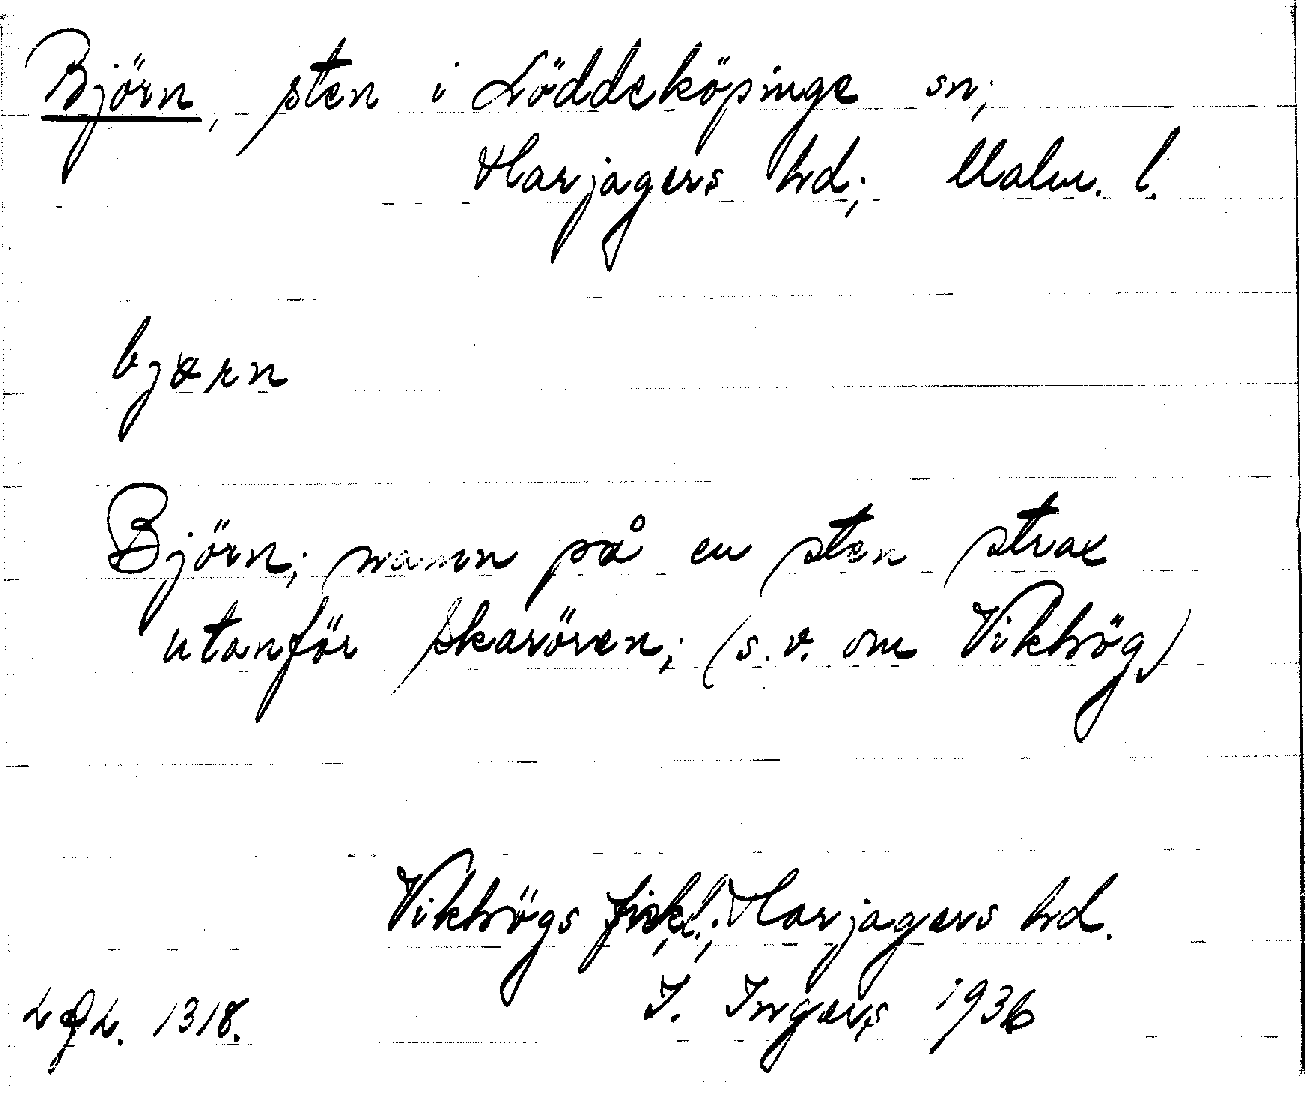 Björn, sten i Löddeköpinge sn;
Harjagers hd; Malm. l.
bjærn
Björn; namn på en sten strax
utanför Skarören; (s.v. om Vikhög)
Vikhögs fiskl.; Harjagers hd.
I. Ingers 1936
1318.